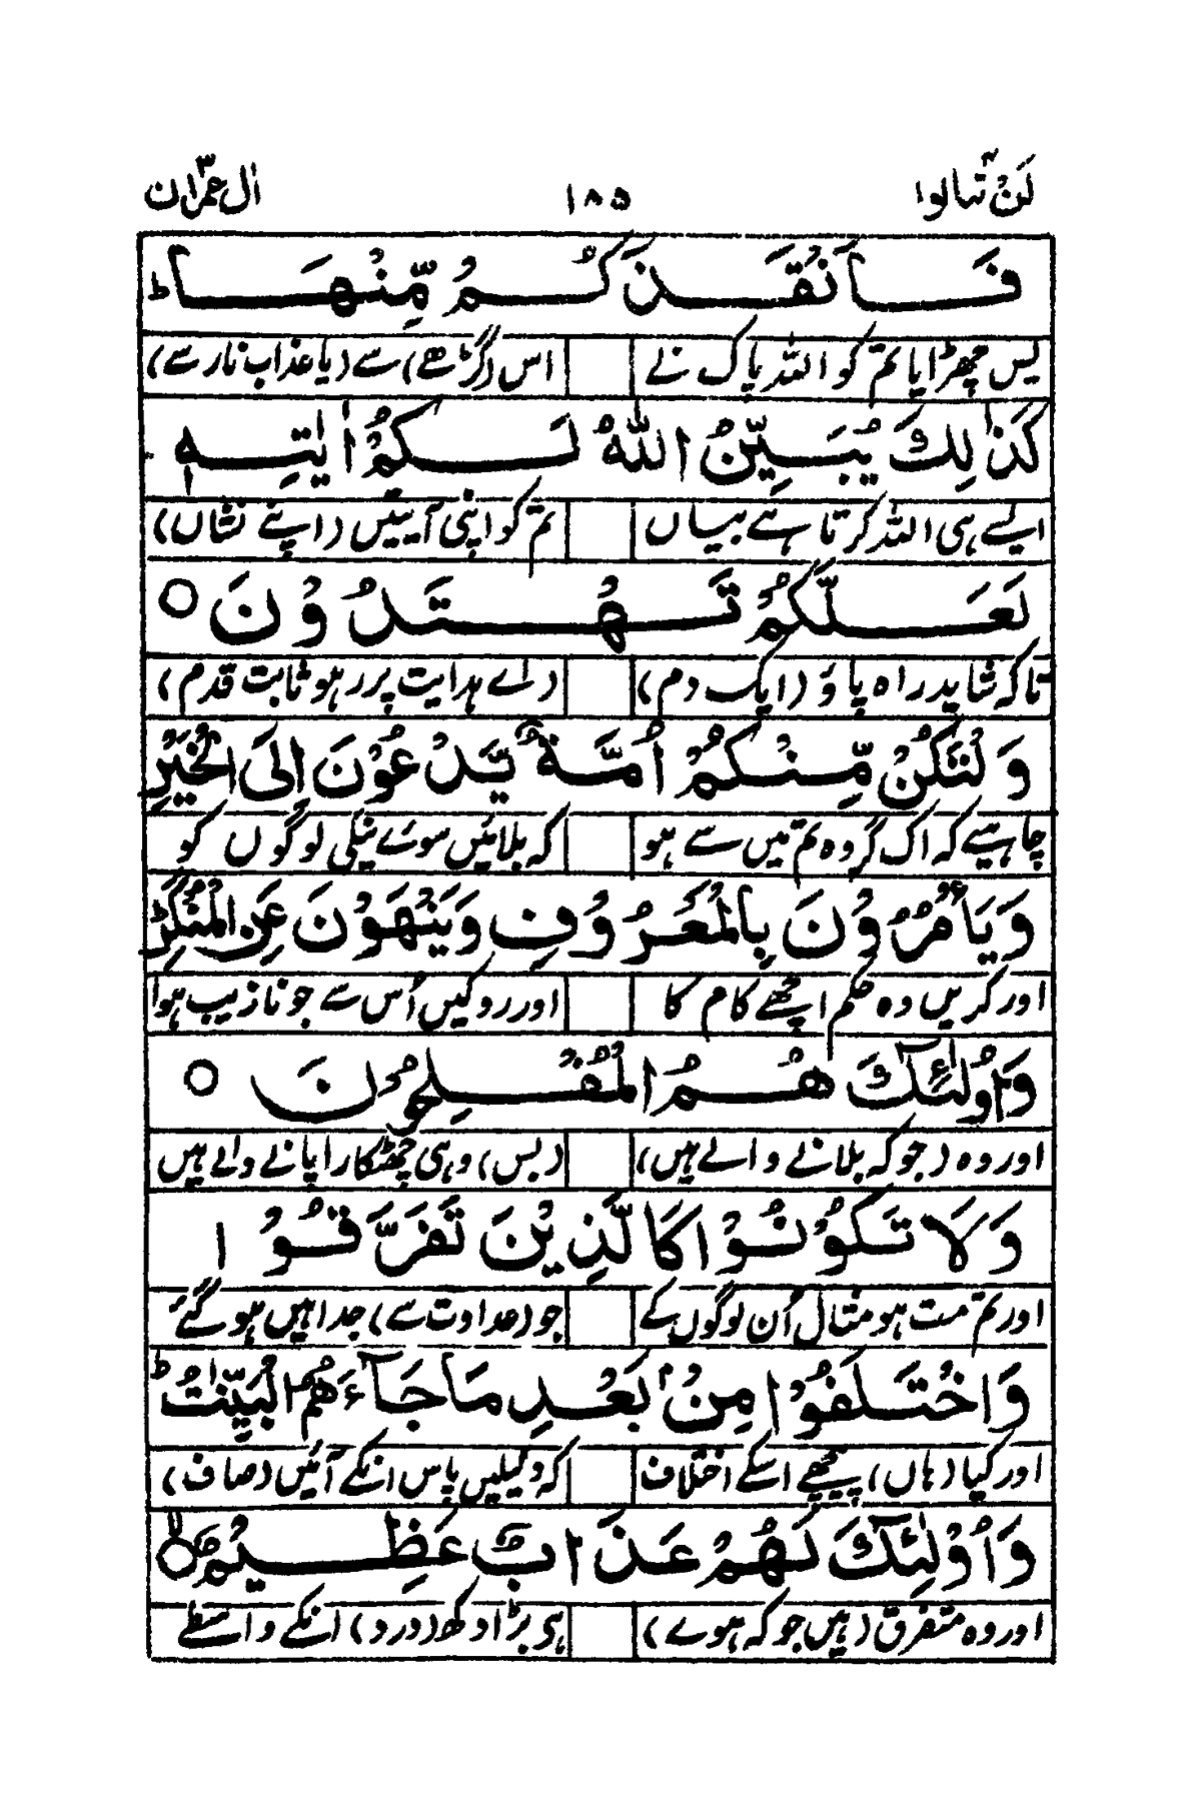 لَنْ تَنَالُوا ۴ ۱۸۵ اٰل عمرٰن ۳
فَاَنْقَذَكُمْ مِّنْهَا ؕ
پس چھڑایا تم کو اللہ پاک نے اس (گڑھے) سے (یا عذاب نار سے)
كَذٰلِكَ يُبَيِّنُ اللّٰهُ لَكُمْ اٰيٰتِهٖ
ایسے ہی اللہ کرتا ہے بیاں تم کو اپنی آیتیں (اپنے نشاں)
لَعَلَّكُمْ تَهْتَدُوْنَ ○
تاکہ شاید راہ پاؤ (ایک دم) (اے ہدایت پر رہو ثابت قدم)
وَلْتَكُنْ مِّنْكُمْ اُمَّةٌ يَّدْعُوْنَ اِلَى الْخَيْرِ
چاہیے کہ اک گروہ تم میں سے ہو کہ بلائیں سوئے نیکی لوگوں کو
وَيَاْمُرُوْنَ بِالْمَعْرُوْفِ وَيَنْهَوْنَ عَنِ الْمُنْكَرِ ؕ
اور کریں وہ حکم اچھے کام کا اور روکیں اُس سے جو نازیب ہوا
وَاُولٰٓئِكَ هُمُ الْمُفْلِحُوْنَ ○
اور وہ (جو کہ بلانے والے ہیں) (بس) وہی چھٹکارا پانے والے ہیں
وَلَا تَكُوْنُوْا كَالَّذِيْنَ تَفَرَّقُوْا
اور تم مت ہو مثال اُن لوگوں کے جو (عداوت سے) جدا ہیں ہو گئے
وَاخْتَلَفُوْا مِنْۢ بَعْدِ مَا جَآءَهُمُ الْبَيِّنٰتُ ؕ
اور کیا (ہاں) پیچھے اسکے اختلاف کہ دلیلیں پاس انکے آئیں (صاف)
وَاُولٰٓئِكَ لَهُمْ عَذَابٌ عَظِيْمٌ ○ۙ
اور وہ متفرق (ہیں جو کہ ہوے) ہی بڑا دکھ (درد) انکے واسطے